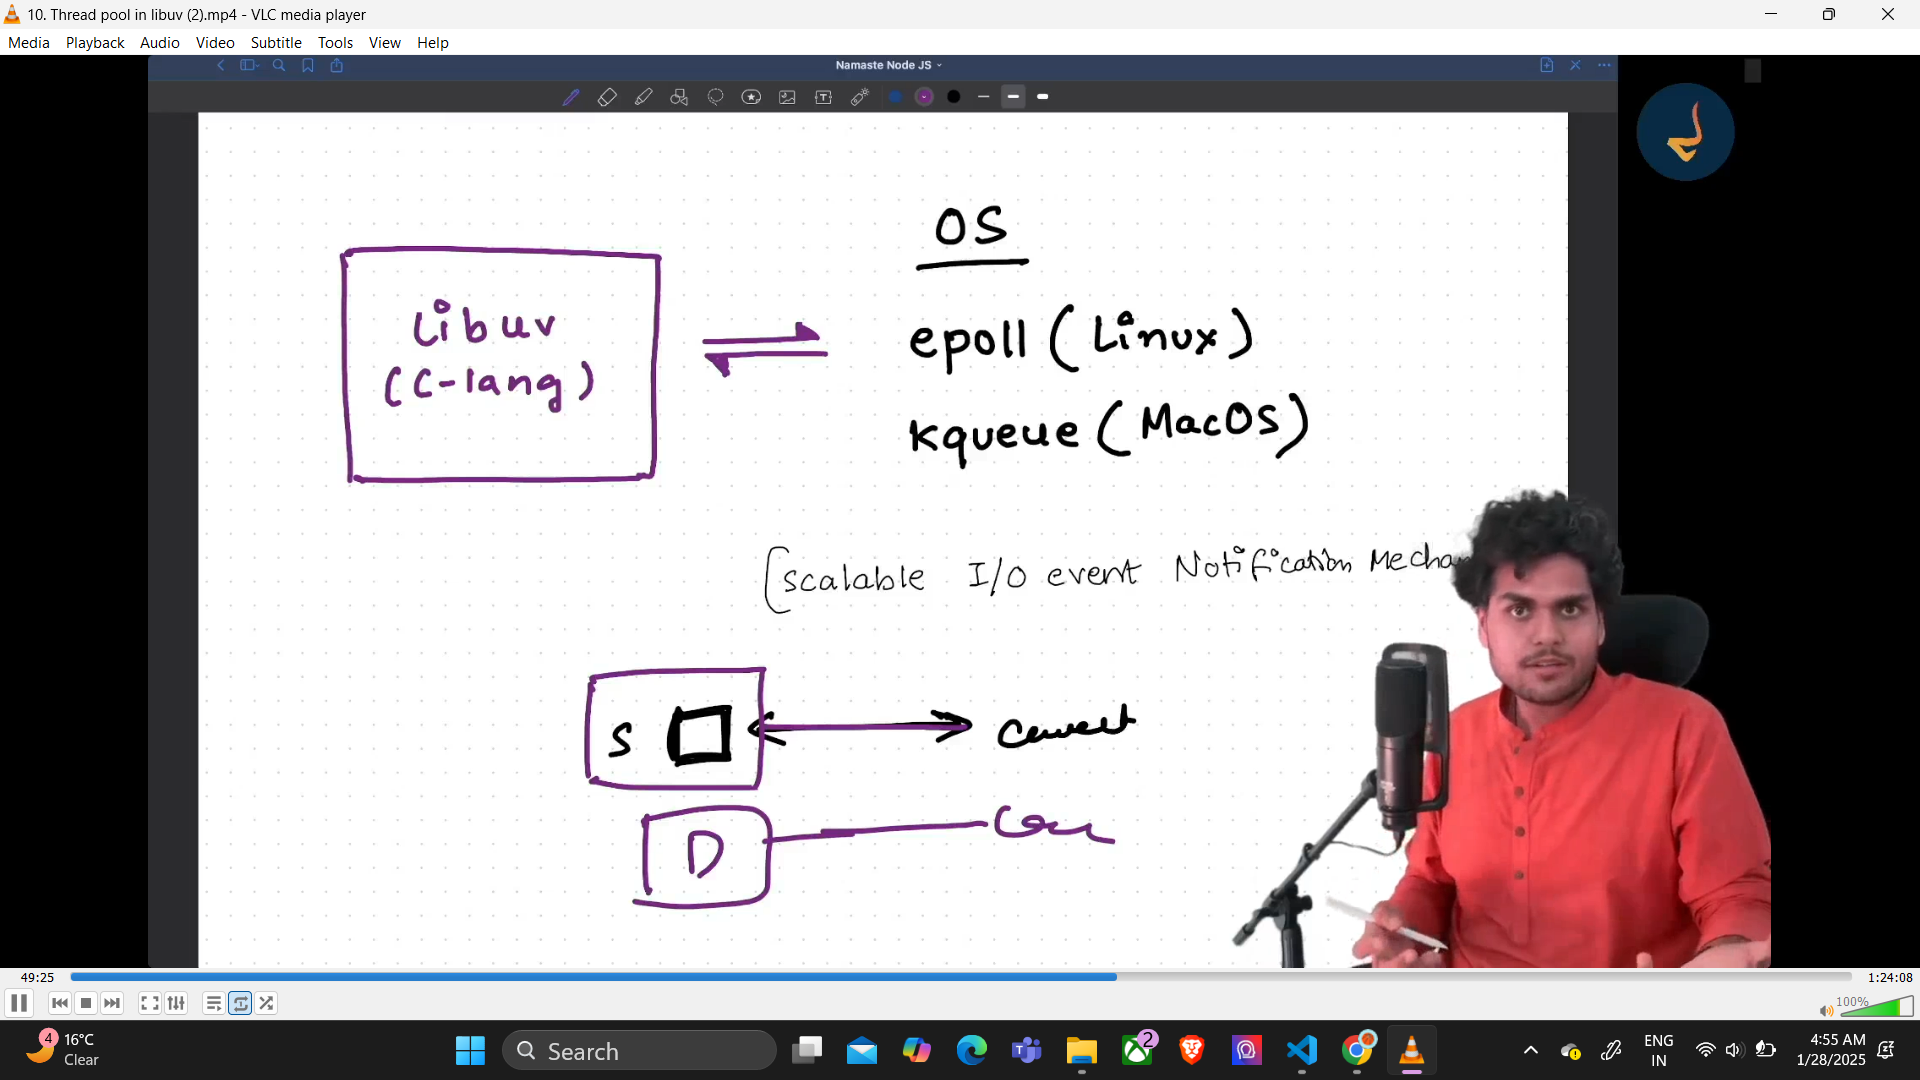 10. Thread pool in libuv (2).mp4 - VLC media player
Media Playback Audio Video Subtitle Tools View Help
Namaste Node JS
OS
Libuv
(C-lang)
epoll (Linux)
kqueue (MacOS)
(scalable I/O event Notification Mecha
S
D
49:25
1:24:08
100%
4
16°C
Clear
Search
2
ENG
IN
4:55 AM
1/28/2025